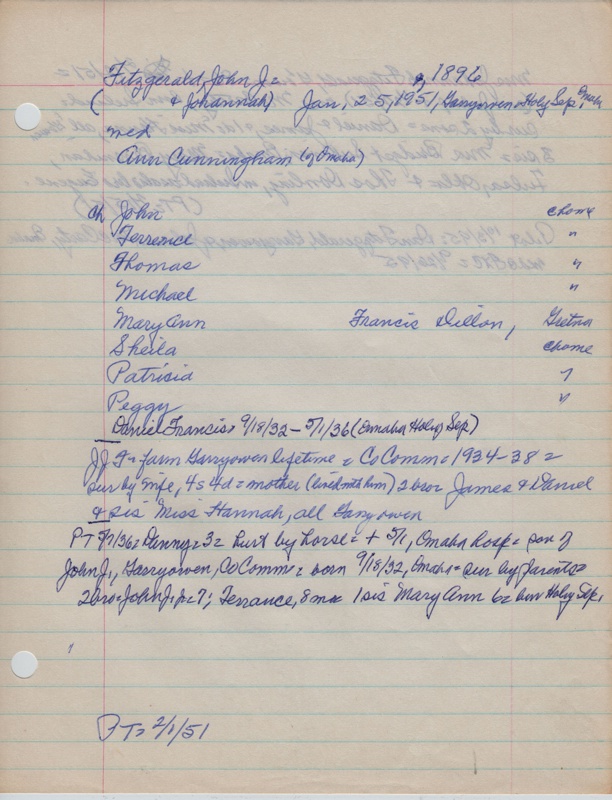 Fitzgerald John J = 1896
(& Johannah) Jan, 25, 1951, Garryowen = Holy Sep, Omaha
med
Ann Cunningham (of Omaha)
ch John chome
Terrence "
Thomas "
Michael "
Mary Ann Francis Dillon, Gretna
Sheila chome
Patricia "
Peggy "
Daniel Francis = 9/18/32 – 5/1/36 (Omaha Holy Sep)
JJF = farm Garryowen lifetime = Co Comm = 1934-38 =
sur by wife, 4s 4d = mother (lived with him) 2 bros James & Daniel
& sis Miss Hannah, all Garryowen
PT 5/7/36 = Danny = 3 = hurt by horse = + 5/1, Omaha hosp = son of
John J, Garryowen, Co Comm = born 9/18/32, Omaha = sur by parents =
2 bro = John J, Jr = 7; Terrance, 8 mo = 1 sis Mary Ann 6 = bur Holy Sep,
PT = 2/1/51